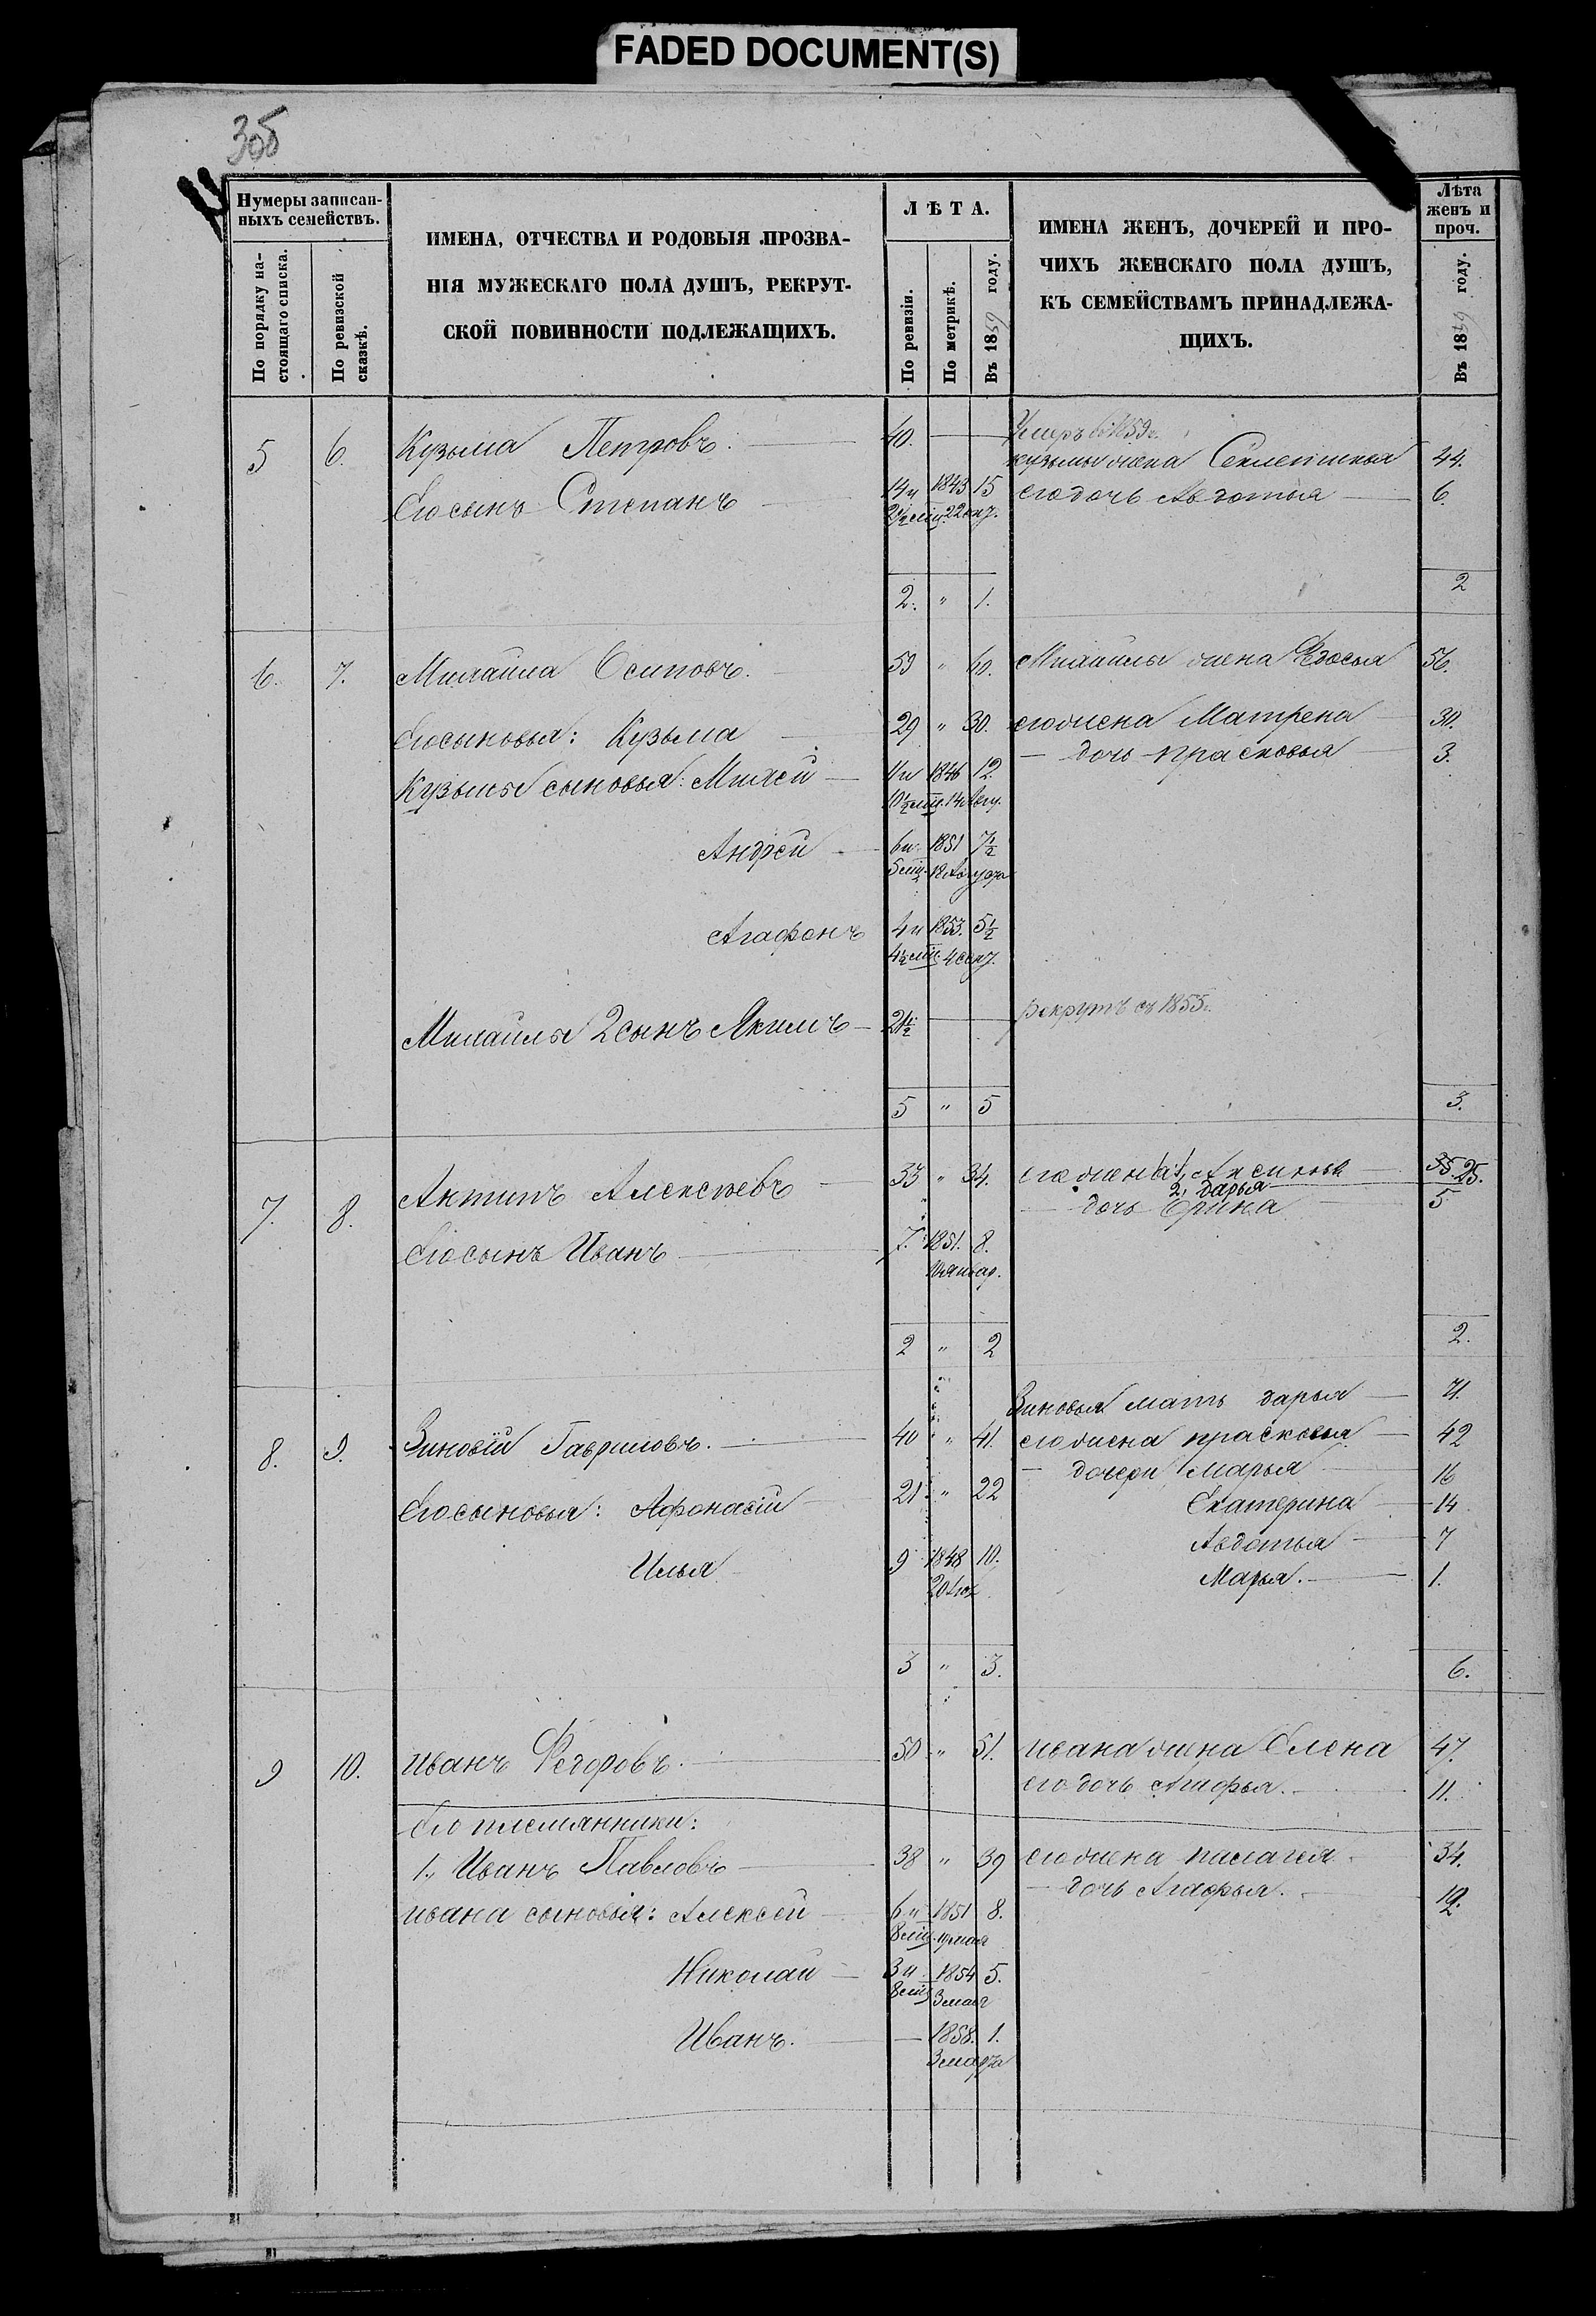 FADED DOCUMENT(S)
305
Нумеры записан-
ныхъ семействъ.
По порядку на-
стоящаго списка.
По ревизской
сказкѣ.
ИМЕНА, ОТЧЕСТВА И РОДОВЫЯ ПРОЗВА-
НІЯ МУЖЕСКАГО ПОЛА ДУШЪ, РЕКРУТ-
СКОЙ ПОВИННОСТИ ПОДЛЕЖАЩИХЪ.
ЛѢТА.
По ревизіи.
По метрикѣ.
Въ 1859 году.
ИМЕНА ЖЕНЪ, ДОЧЕРЕЙ И ПРО-
ЧИХЪ ЖЕНСКАГО ПОЛА ДУШЪ,
КЪ СЕМЕЙСТВАМЪ ПРИНАДЛЕЖА-
ЩИХЪ.
Лѣта
женъ и
проч.
Въ 1859 году.
Умеръ въ 1859 г.
5 6. Кузьма Петровъ. 40. Кузьмы жена 44.
Его сынъ Степанъ 14 и 1843 15 его дочь Авдотья 6.
2½ мѣц. 22 окт.
2. " 1. 2
6. 7. Михайла Осиповъ. 59 " 60. Михайлы жена Федосья 56.
Его сыновья: Кузьма 29 " 30. его жена Матрена 30.
— дочь Прасковья 3.
Кузьмы сыновья: Михей 11 и 1846 12
10½ мѣц. 14 Авгу.
Андрей 6 и 1851 7½
5 мѣц. 18 Августа
Агафонъ 4 и 1853. 5½
4½ мѣц. 4 сент.
Михайлы 2 сынъ Якимъ 21½ рекрутъ съ 1855 г.
5 " 5 3.
7. 8. Антипъ Алексѣевъ 33 " 34. его жена 1, Аксинья 35. 25.
2, Дарья
— дочь Ерина 5
Его сынъ Иванъ 7. 1851. 8.
январ.
2 " 2 2.
Зиновья мать Дарья 71.
8. 9. Зиновій Гавриловъ. 40 " 41. его жена Прасковья 42
— дочери Марья 16
Его сыновья: Афонасій 21 " 22 Екатерина 14
Авдотья 7
Илья 9 1848 10. Марья. 1.
20
3 " 3. 6.
9 10. Иванъ Федоровъ. 50 " 51. Ивана жена Елена 47.
его дочь 11.
Его племянники:
1, Иванъ Павловъ 38 " 39 его жена Палагея 34.
— дочь Агафья. 12.
Ивана сыновья: Алексей 6 и 1851 8.
8 мѣц. мая
Николай 3 и 1854 5.
8 мѣц. 3 мая
Иванъ. — 1858. 1.
3 марта